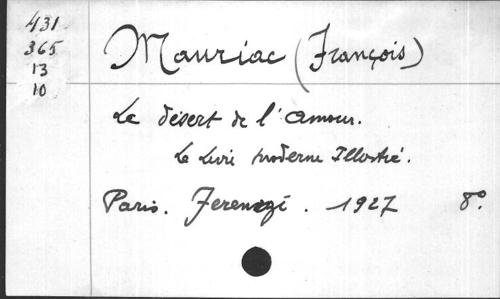 431
365
13
10
Mauriac (François)
Le désert de l'amour.
Le Livre moderne Illustré.
Paris. Ferenczi. 1927 8°